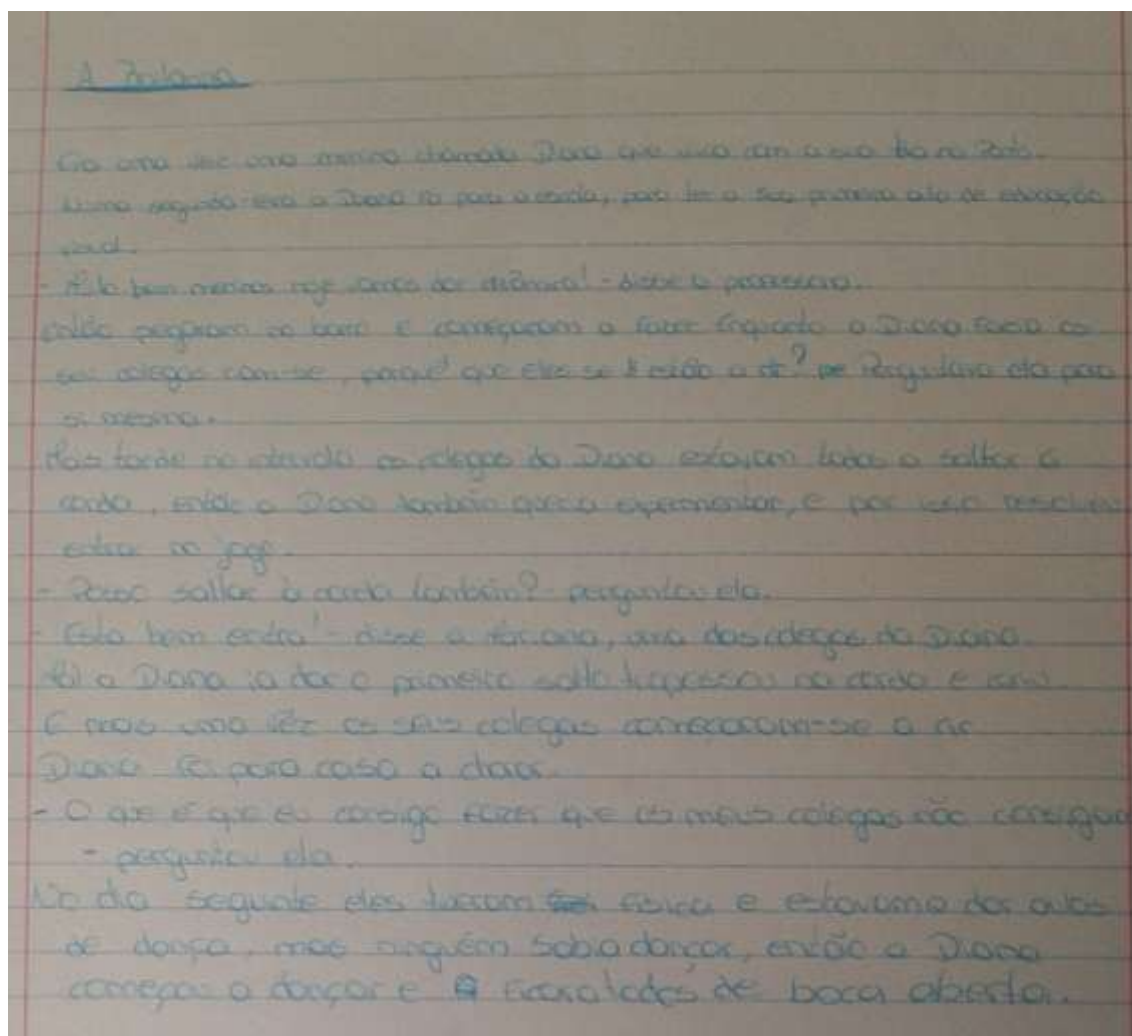 A Bailarina
Era uma vez uma menina chamada Diana que vivia com a sua tia no Porto.
Numa segunda-feira a Diana foi para a escola, para ter a sua primeira aula de educação
visual.
- Muito bem meninos hoje vamos dar cerâmica! - disse a professora.
então pegaram no barro e começaram a fazer enquanto a Diana fazia os
seus colegas riam-se, porque é que eles se estão a rir? Perguntava ela para
si mesma.
Mais tarde no intervalo os colegas da Diana estavam todos a saltar à
corda, então a Diana também queria experimentar, e por isso resolveu
entrar no jogo.
- Posso saltar à corda também? - perguntou ela.
- Esta bem entra! - disse a Mariana, uma das colegas da Diana.
a Diana ia dar o primeiro salto tropessou na corda e caiu.
E mais uma vêz os seus colegas começaram-se a rir
Diana foi para casa a chorar
- O que é que eu consigo fazer que os meus colegas não consigam
- perguntou ela.
No dia seguinte eles tiveram física e estavam a dar aulas
de dança, mas ninguém sabia dançar, então a Diana
começou a dançar e todos de boca aberta.